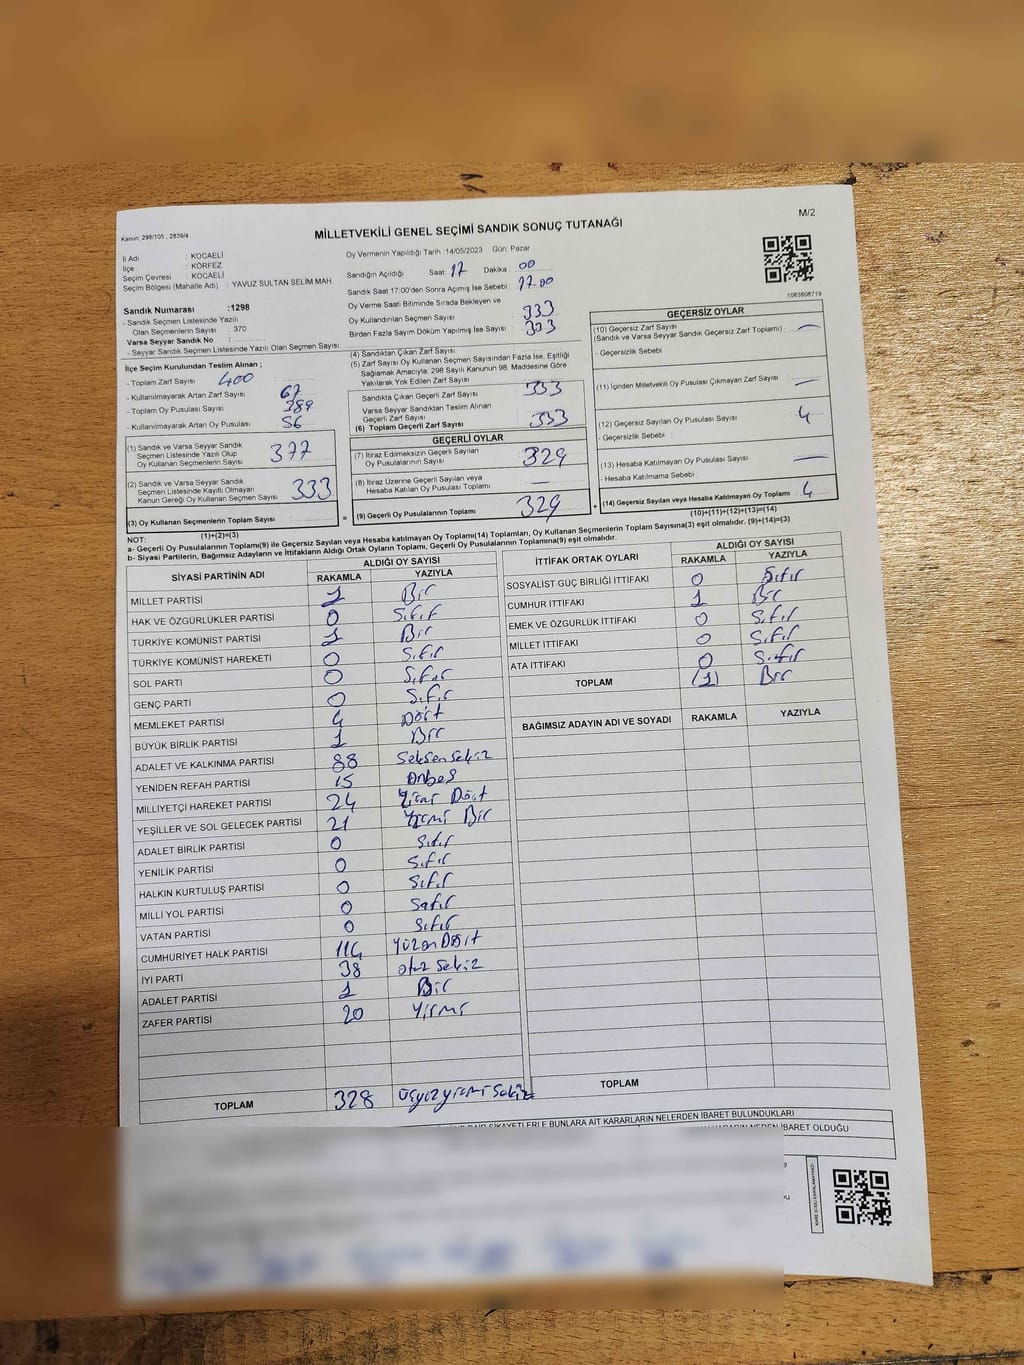 M/2
Kanun: 298/105 , 2839/4
MİLLETVEKİLİ GENEL SEÇİMİ SANDIK SONUÇ TUTANAĞI
İl Adı : KOCAELİ
İlçe : KÖRFEZ
Seçim Çevresi : KOCAELİ
Seçim Bölgesi (Mahalle Adı) : YAVUZ SULTAN SELİM MAH.
Oy Vermenin Yapıldığı Tarih :14/05/2023 Gün: Pazar
Sandığın Açıldığı Saat: 17 Dakika : 00
Sandık Saat 17:00'den Sonra Açımış İse Sebebi : 17.00
Oy Verme Saati Bitiminde Sırada Bekleyen ve
Oy Kullandırılan Seçmen Sayısı : 333
Birden Fazla Sayım Döküm Yapılmış İse Sayısı : 333
1083808719
Sandık Numarası :1298
- Sandık Seçmen Listesinde Yazılı
Olan Seçmenlerin Sayısı : 370
Varsa Seyyar Sandık No :
- Seyyar Sandık Seçmen Listesinde Yazılı Olan Seçmen Sayısı:
İlçe Seçim Kurulundan Teslim Alınan ;
- Toplam Zarf Sayısı : 400
- Kullanılmayarak Artan Zarf Sayısı : 67
- Toplam Oy Pusulası Sayısı : 389
- Kullanılmayarak Artan Oy Pusulası : 56
(1) Sandık ve Varsa Seyyar Sandık
Seçmen Listesinde Yazılı Olup
Oy Kullanan Seçmenlerin Sayısı : 377
(2) Sandık ve Varsa Seyyar Sandık
Seçmen Listesinde Kayıtlı Olmayan
Kanun Gereği Oy Kullanan Seçmen Sayısı : 333
(3) Oy Kullanan Seçmenlerin Toplam Sayısı :
(1)+(2)=(3)
(4) Sandıktan Çıkan Zarf Sayısı
(5) Zarf Sayısı Oy Kullanan Seçmen Sayısından Fazla İse, Eşitliği
Sağlamak Amacıyla, 298 Sayılı Kanunun 98. Maddesine Göre
Yakılarak Yok Edilen Zarf Sayısı
Sandıkta Çıkan Geçerli Zarf Sayısı : 333
Varsa Seyyar Sandıktan Teslim Alınan
Geçerli Zarf Sayısı
(6) Toplam Geçerli Zarf Sayısı : 333
GEÇERLİ OYLAR
(7) İtiraz Edilmeksizin Geçerli Sayılan
Oy Pusulalarının Sayısı : 329
(8) İtiraz Üzerine Geçerli Sayılan veya
Hesaba Katılan Oy Pusulası Toplamı : —
(9) Geçerli Oy Pusulaları Toplamı : 329
GEÇERSİZ OYLAR
(10) Geçersiz Zarf Sayısı : —
(Sandık ve Varsa Seyyar Sandık Geçersiz Zarf Toplamı)
- Geçersizlik Sebebi
(11) İçinden Milletvekili Oy Pusulası Çıkmayan Zarf Sayısı : —
(12) Geçersiz Sayılan Oy Pusulası Sayısı : 4
- Geçersizlik Sebebi :
(13) Hesaba Katılmayan Oy Pusulası Sayısı : —
- Hesaba Katılmama Sebebi
(14) Geçersiz Sayılan veya Hesaba Katılmayan Oy Toplamı : 4
(10)+(11)+(12)+(13)=(14)
NOT:
a- Geçerli Oy Pusulalarının Toplamı(9) ile Geçersiz Sayılan veya Hesaba Katılmayan Oy Toplamı(14) Toplamları, Oy Kullanan Seçmenlerin Toplam Sayısına(3) eşit olmalıdır. (9)+(14)=(3)
b- Siyasi Partilerin, Bağımsız Adayların ve İttifakların Aldığı Ortak Oyların Toplamı, Geçerli Oy Pusulalarının Toplamına(9) eşit olmalıdır.
SİYASİ PARTİNİN ADI ALDIĞI OY SAYISI
RAKAMLA YAZIYLA
MİLLET PARTİSİ 1 Bir
HAK VE ÖZGÜRLÜKLER PARTİSİ 0 Sıfır
TÜRKİYE KOMÜNİST PARTİSİ 1 Bir
TÜRKİYE KOMÜNİST HAREKETİ 0 Sıfır
SOL PARTİ 0 Sıfır
GENÇ PARTİ 0 Sıfır
MEMLEKET PARTİSİ 4 Dört
BÜYÜK BİRLİK PARTİSİ 1 Bir
ADALET VE KALKINMA PARTİSİ 88 Seksen sekiz
YENİDEN REFAH PARTİSİ 15 Onbeş
MİLLİYETÇİ HAREKET PARTİSİ 24 Yirmi Dört
YEŞİLLER VE SOL GELECEK PARTİSİ 21 Yirmi Bir
ADALET BİRLİK PARTİSİ 0 Sıfır
YENİLİK PARTİSİ 0 Sıfır
HALKIN KURTULUŞ PARTİSİ 0 Sıfır
MİLLİ YOL PARTİSİ 0 Sıfır
VATAN PARTİSİ 0 Sıfır
CUMHURİYET HALK PARTİSİ 114 Yüzon Dört
İYİ PARTİ 38 otuz Sekiz
ADALET PARTİSİ 1 Bir
ZAFER PARTİSİ 20 Yirmi
TOPLAM 328 Üçyüzyirmi Sekiz
İTTİFAK ORTAK OYLARI ALDIĞI OY SAYISI
RAKAMLA YAZIYLA
SOSYALİST GÜÇ BİRLİĞİ İTTİFAKI 0 Sıfır
CUMHUR İTTİFAKI 1 Bir
EMEK VE ÖZGÜRLÜK İTTİFAKI 0 Sıfır
MİLLET İTTİFAKI 0 Sıfır
ATA İTTİFAKI 0 Sıfır
TOPLAM (1) Bir
BAĞIMSIZ ADAYIN ADI VE SOYADI RAKAMLA YAZIYLA
TOPLAM
ŞİKAYETLERLE BUNLARA AİT KARARLARIN NELERDEN İBARET BULUNDUKLARI
KARARIN NEDEN İBARET OLDUĞU